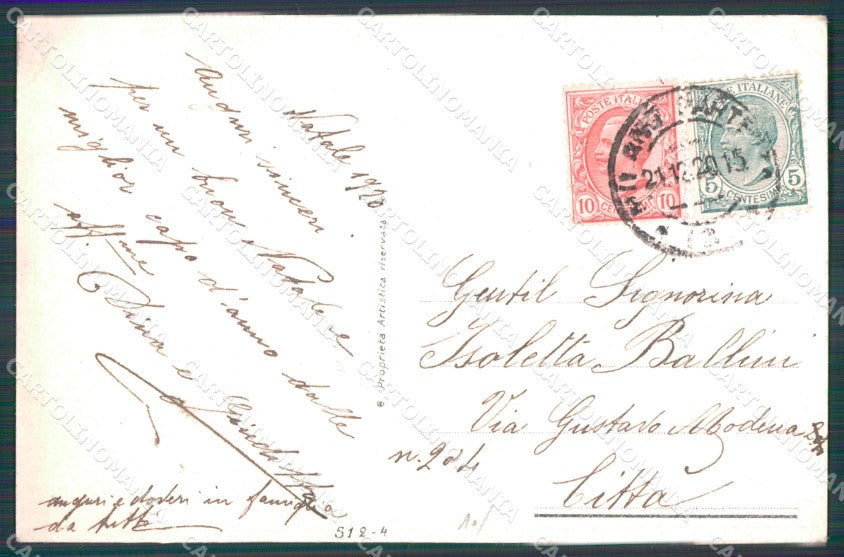 Natale 1920
Auguri sinceri
per un buon Natale e
miglior capo d'anno dalle
aff.me
Dina e
auguri e doveri in famiglia
da tutti
512-4
© (Proprietà Artistica riservata)
POSTE ITALIANE
10 CENTESIMI 10
POSTE ITALIANE
5 CENTESIMI 5
MILANO PARTENZA
21.12.20.15
Gentil Signorina
Isoletta Ballini
Via Gustavo Modena
n. 
Città
CARTOLINOMANIA